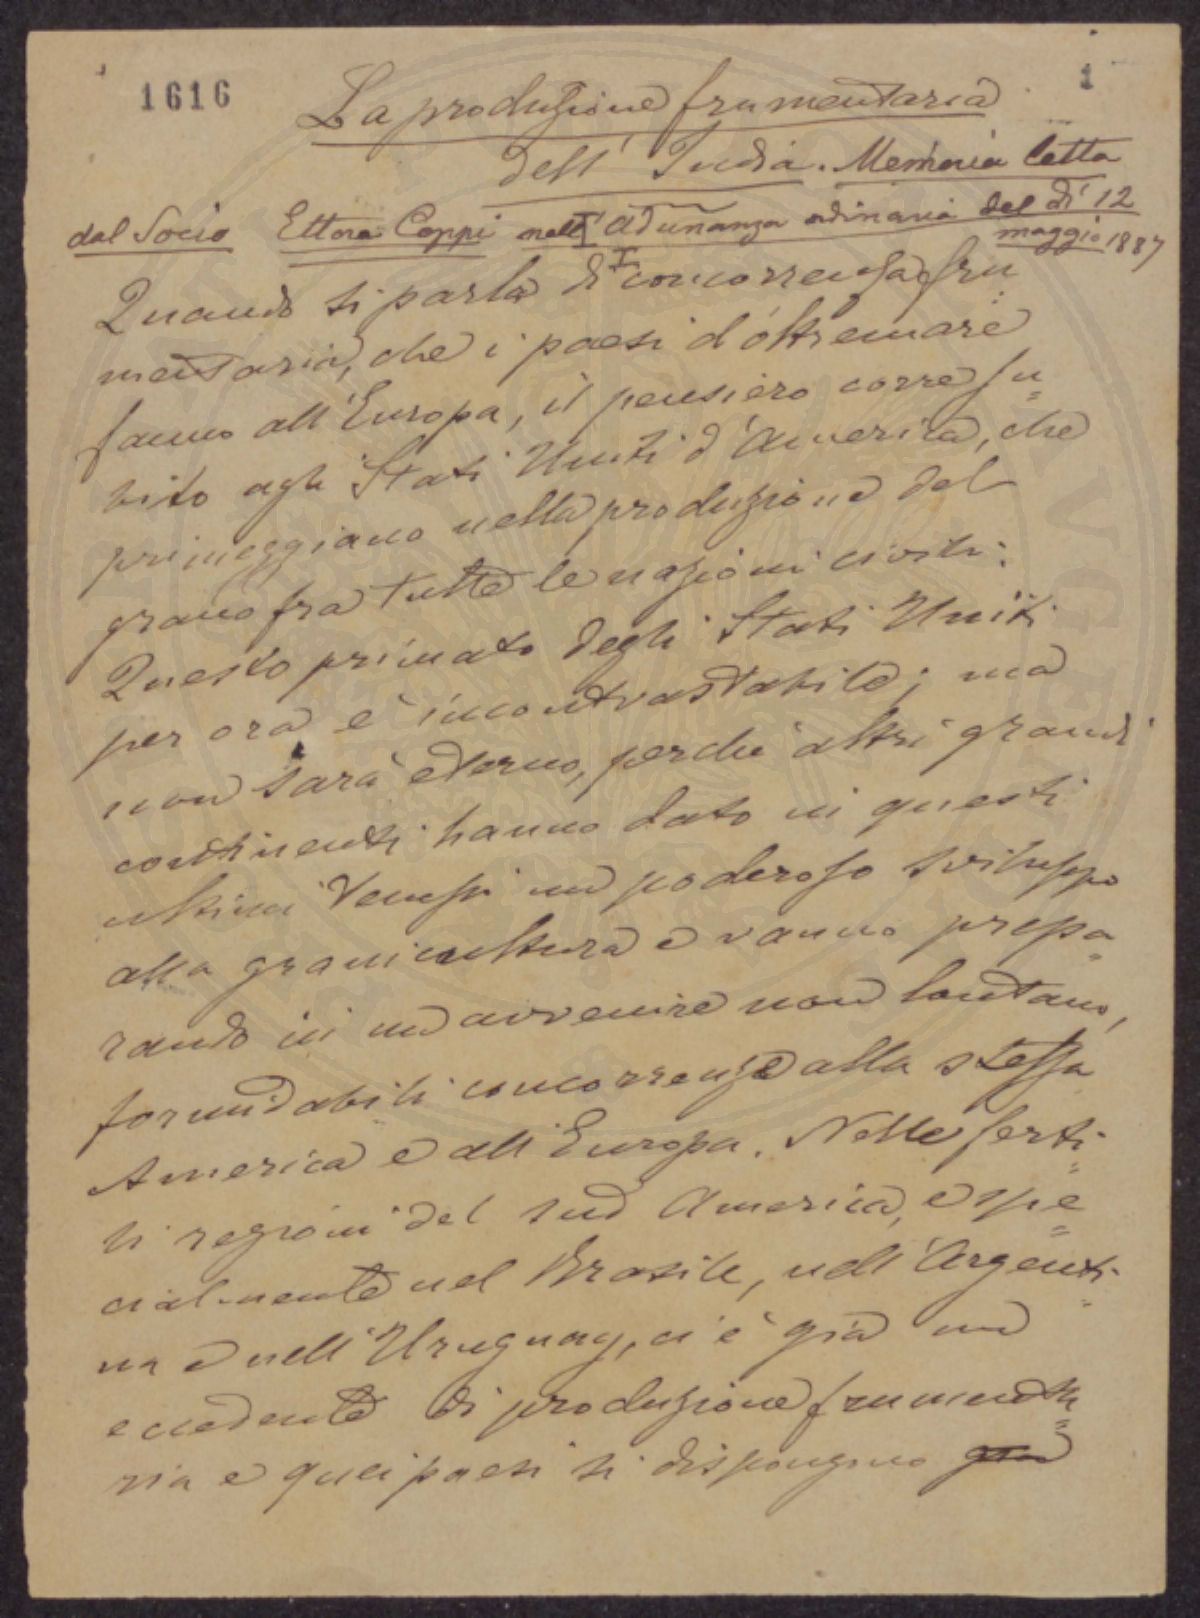 1616
1
La produzione frumentaria
dell'India. Memoria letta
dal Socio Ettore Coppi nell'adunanza ordinaria del dì 12
maggio 1887
I
Quando si parla di concorrenza fru
mentaria, che i paesi d'oltremare
fanno all'Europa, il pensiero corre su=
bito agli Stati Uniti d'America, che
primeggiano nella produzione del
grano fra tutte le nazioni civili.
Questo primato degli Stati Uniti
per ora è incontrastabile; ma
non sarà eterno, perché altri grandi
continenti hanno dato in questi
ultimi tempi un poderoso sviluppo
alla granicultura e vanno prepa=
rando in un avvenire non lontano,
formidabili concorrenze alla stessa
America e all'Europa. Nelle ferti=
li regioni del sud America, e spe=
cialmente nel Brasile, nell'Argenti=
na e nell'Uruguay, ci è già un
eccedente di produzione frumenta=
ria e quei paesi si dispongono già